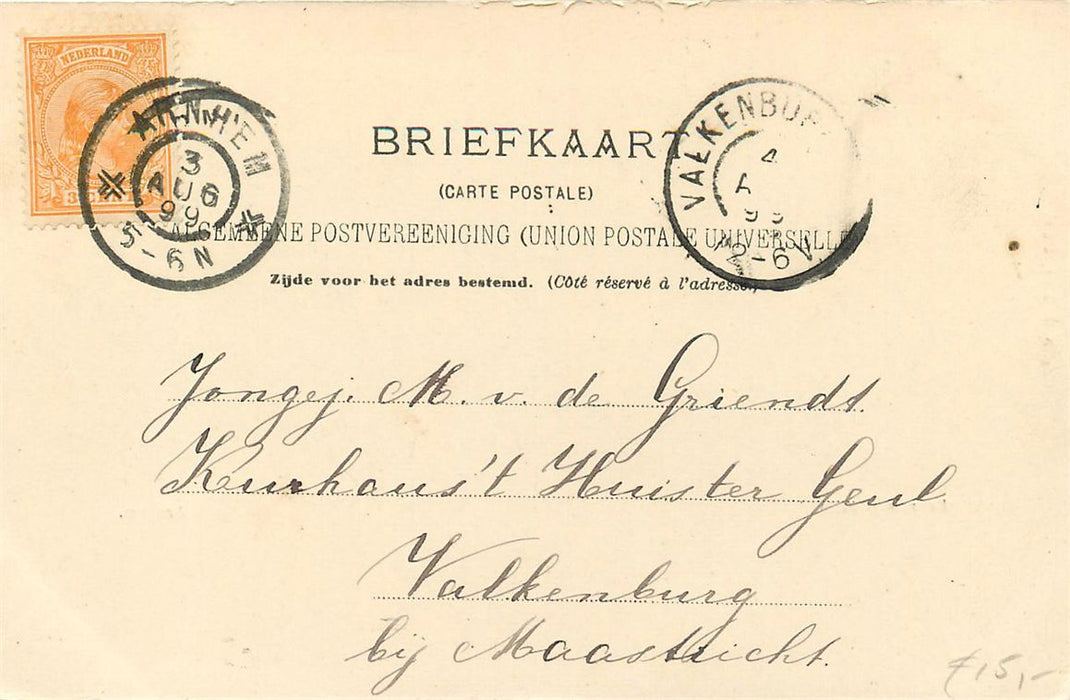 NEDERLAND
ARNHEM
3
AUG
99
5-6N
BRIEFKAART
(CARTE POSTALE)
ALGEMEENE POSTVEREENIGING (UNION POSTALE UNIVERSELLE
Zijde voor het adres bestemd. (Côté réservé à l'adresse.)
VALKENBU
4
A
99
-6V
Jongej. M. v. de Griendt.
Kurhaus 't Huis ter Geul
Valkenburg
bij Maastricht.
ƒ15,-